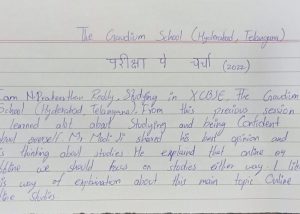 The Gaudium School (Hyderabad, Telangana)
परीक्षा पे चर्चा (2022)
I am N. Prabandhan Reddy, Studying in X CBSE, The Gaudium
School (Hyderabad, Telangana). From this previous session
I learned alot about Studying and being Confident
about oneself Mr. Modi Ji shared his best opinion and
is thinking about studies He explained that online or
offline we should focus on studies either way I like
his way of explanation about this main topic Online
Studies